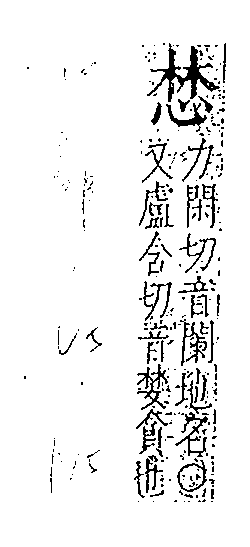 惏
力閑切音闌地名○
又盧含切音婪貪也